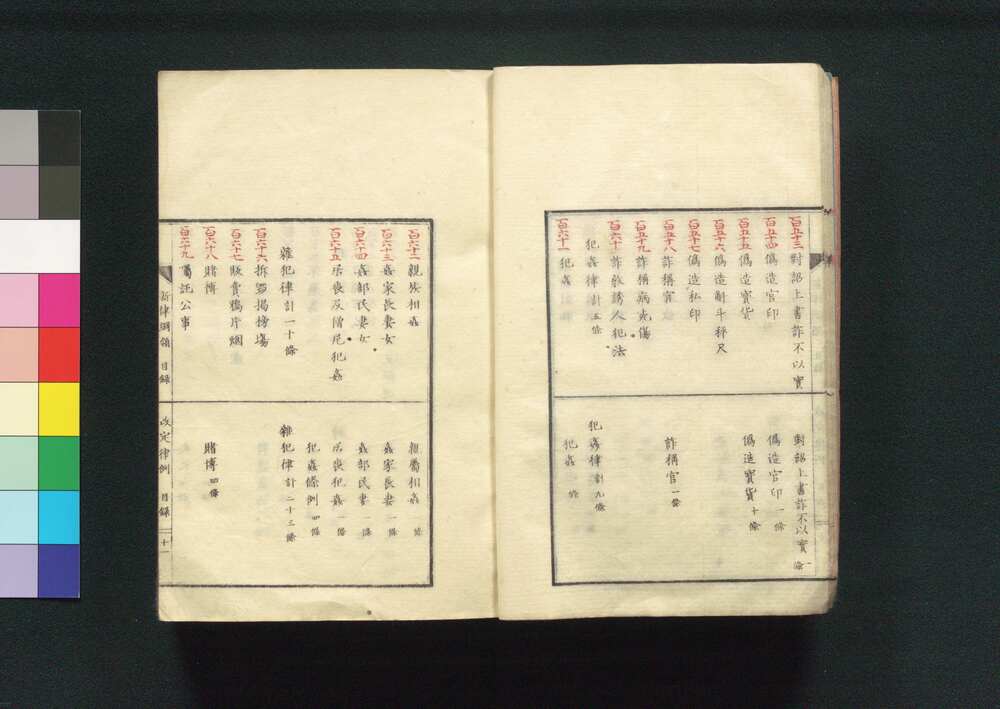 百五十三 對詔上書詐不以實
百五十四 僞造官印
百五十五 僞造寶貨
百五十六 僞造斛斗秤尺
百五十七 僞造私印
百五十八 詐稱官
百五十九 詐稱病死傷
百六十 詐敎誘人犯法
犯姦律 計五條
百六十一 犯姦
對詔上書詐不以實 一條
僞造官印 一條
僞造寶貨 十條
詐稱官 一條
犯姦律 計九條
犯姦 一條
百六十二 親族相姦
百六十三 姦家長妻女
百六十四 姦部民妻女
百六十五 居喪及僧尼犯姦
雜犯律 計一十條
百六十六 拆毀揭榜場
百六十七 販賣鴉片烟
百六十八 賭博
百六十九 囑託公事
親屬相姦 一條
姦家長妻 一條
姦部民妻 一條
居喪犯姦 一條
犯姦條例 四條
雜犯律 計二十三條
賭博 四條
新律綱領 目錄
改定律例 目錄
十一